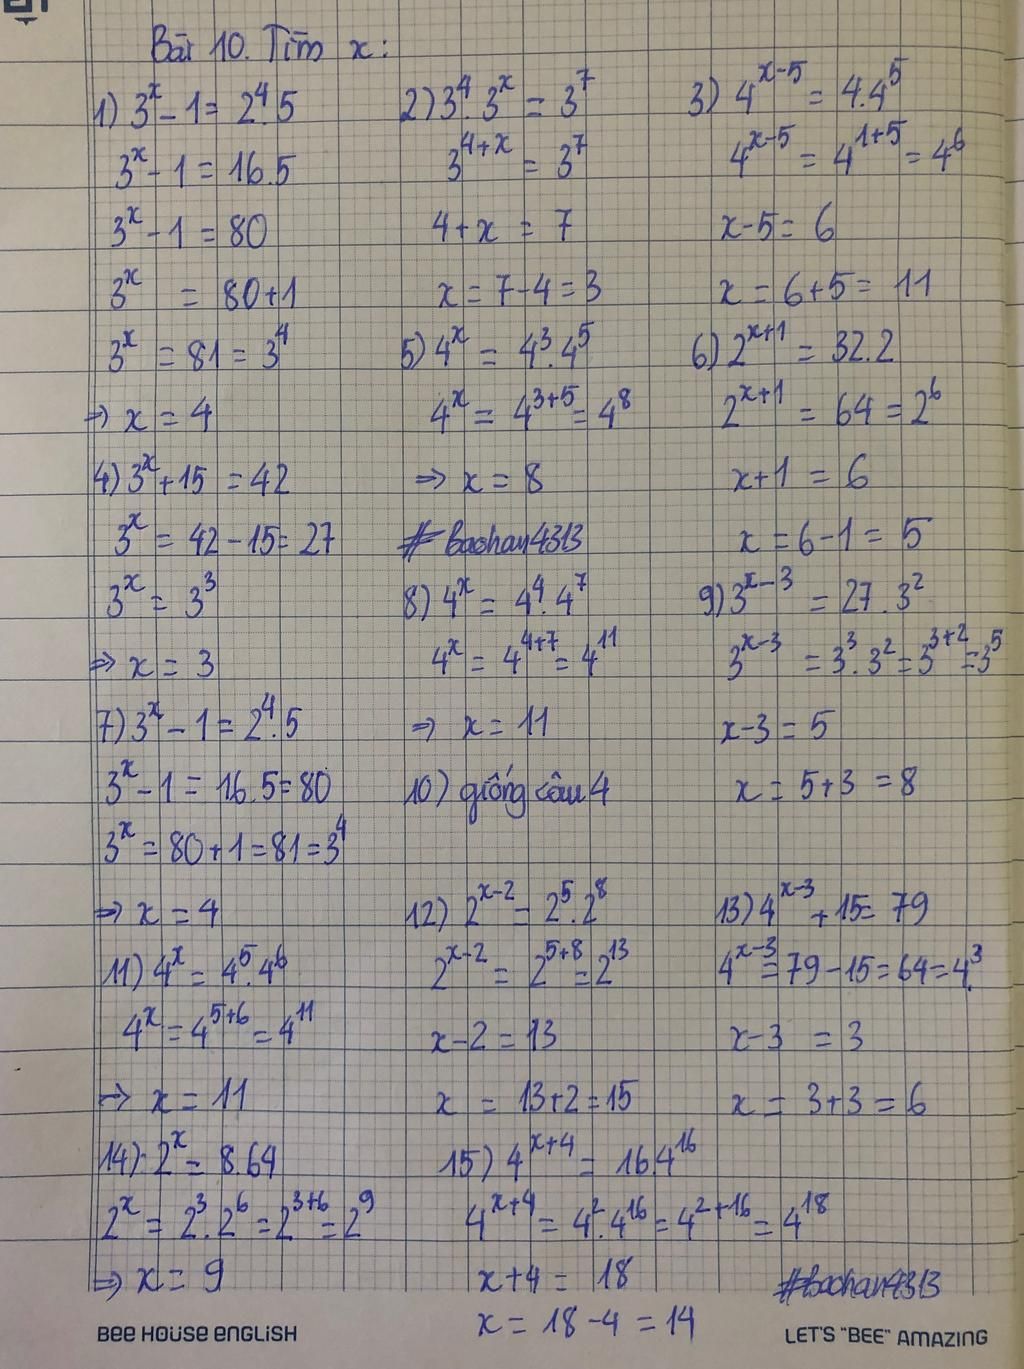 Bài 10. Tìm x:
1) 3^x - 1 = 2^4.5
3^x - 1 = 16.5
3^x - 1 = 80
3^x = 80+1
3^x = 81 = 3^4
=> x = 4
2) 3^4. 3^x = 3^7
3^{4+x} = 3^7
4+x = 7
x = 7-4 = 3
3) 4^{x-5} = 4.4^5
4^{x-5} = 4^{1+5} = 4^6
x-5 = 6
x = 6+5 = 11
4) 3^x + 15 = 42
3^x = 42 - 15 = 27
3^x = 3^3
=> x = 3
5) 4^x = 4^3.4^5
4^x = 4^{3+5} = 4^8
=> x = 8
#baohan4313
6) 2^{x+1} = 32.2
2^{x+1} = 64 = 2^6
x+1 = 6
x = 6-1 = 5
7) 3^x - 1 = 2^4.5
3^x - 1 = 16.5 = 80
3^x = 80+1 = 81 = 3^4
=> x = 4
8) 4^x = 4^4.4^7
4^x = 4^{4+7} = 4^{11}
=> x = 11
9) 3^{x-3} = 27.3^2
3^{x-3} = 3^3.3^2 = 3^{3+2} = 3^5
x-3 = 5
x = 5+3 = 8
10) giống câu 4
11) 4^x = 4^5.4^6
4^x = 4^{5+6} = 4^{11}
=> x = 11
12) 2^{x-2} = 2^5.2^8
2^{x-2} = 2^{5+8} = 2^{13}
x-2 = 13
x = 13+2 = 15
13) 4^{x-3} + 15 = 79
4^{x-3} = 79 - 15 = 64 = 4^3
x-3 = 3
x = 3+3 = 6
14) 2^x = 8.64
2^x = 2^3.2^6 = 2^{3+6} = 2^9
=> x = 9
15) 4^{x+4} = 16.4^{16}
4^{x+4} = 4^2.4^{16} = 4^{2+16} = 4^{18}
x+4 = 18
x = 18-4 = 14
#baohan4313
Bee House English
Let's "Bee" Amazing